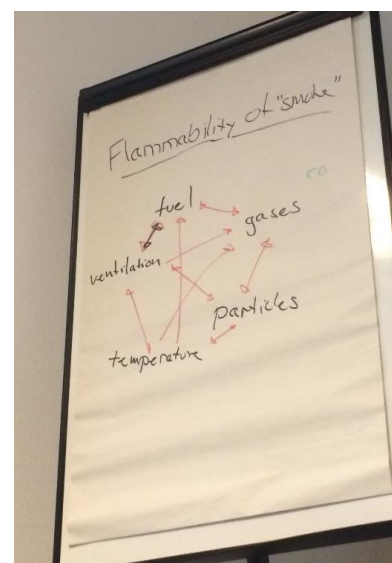 Flammability of "smoke"
CO
fuel
gases
ventilation
particles
temperature